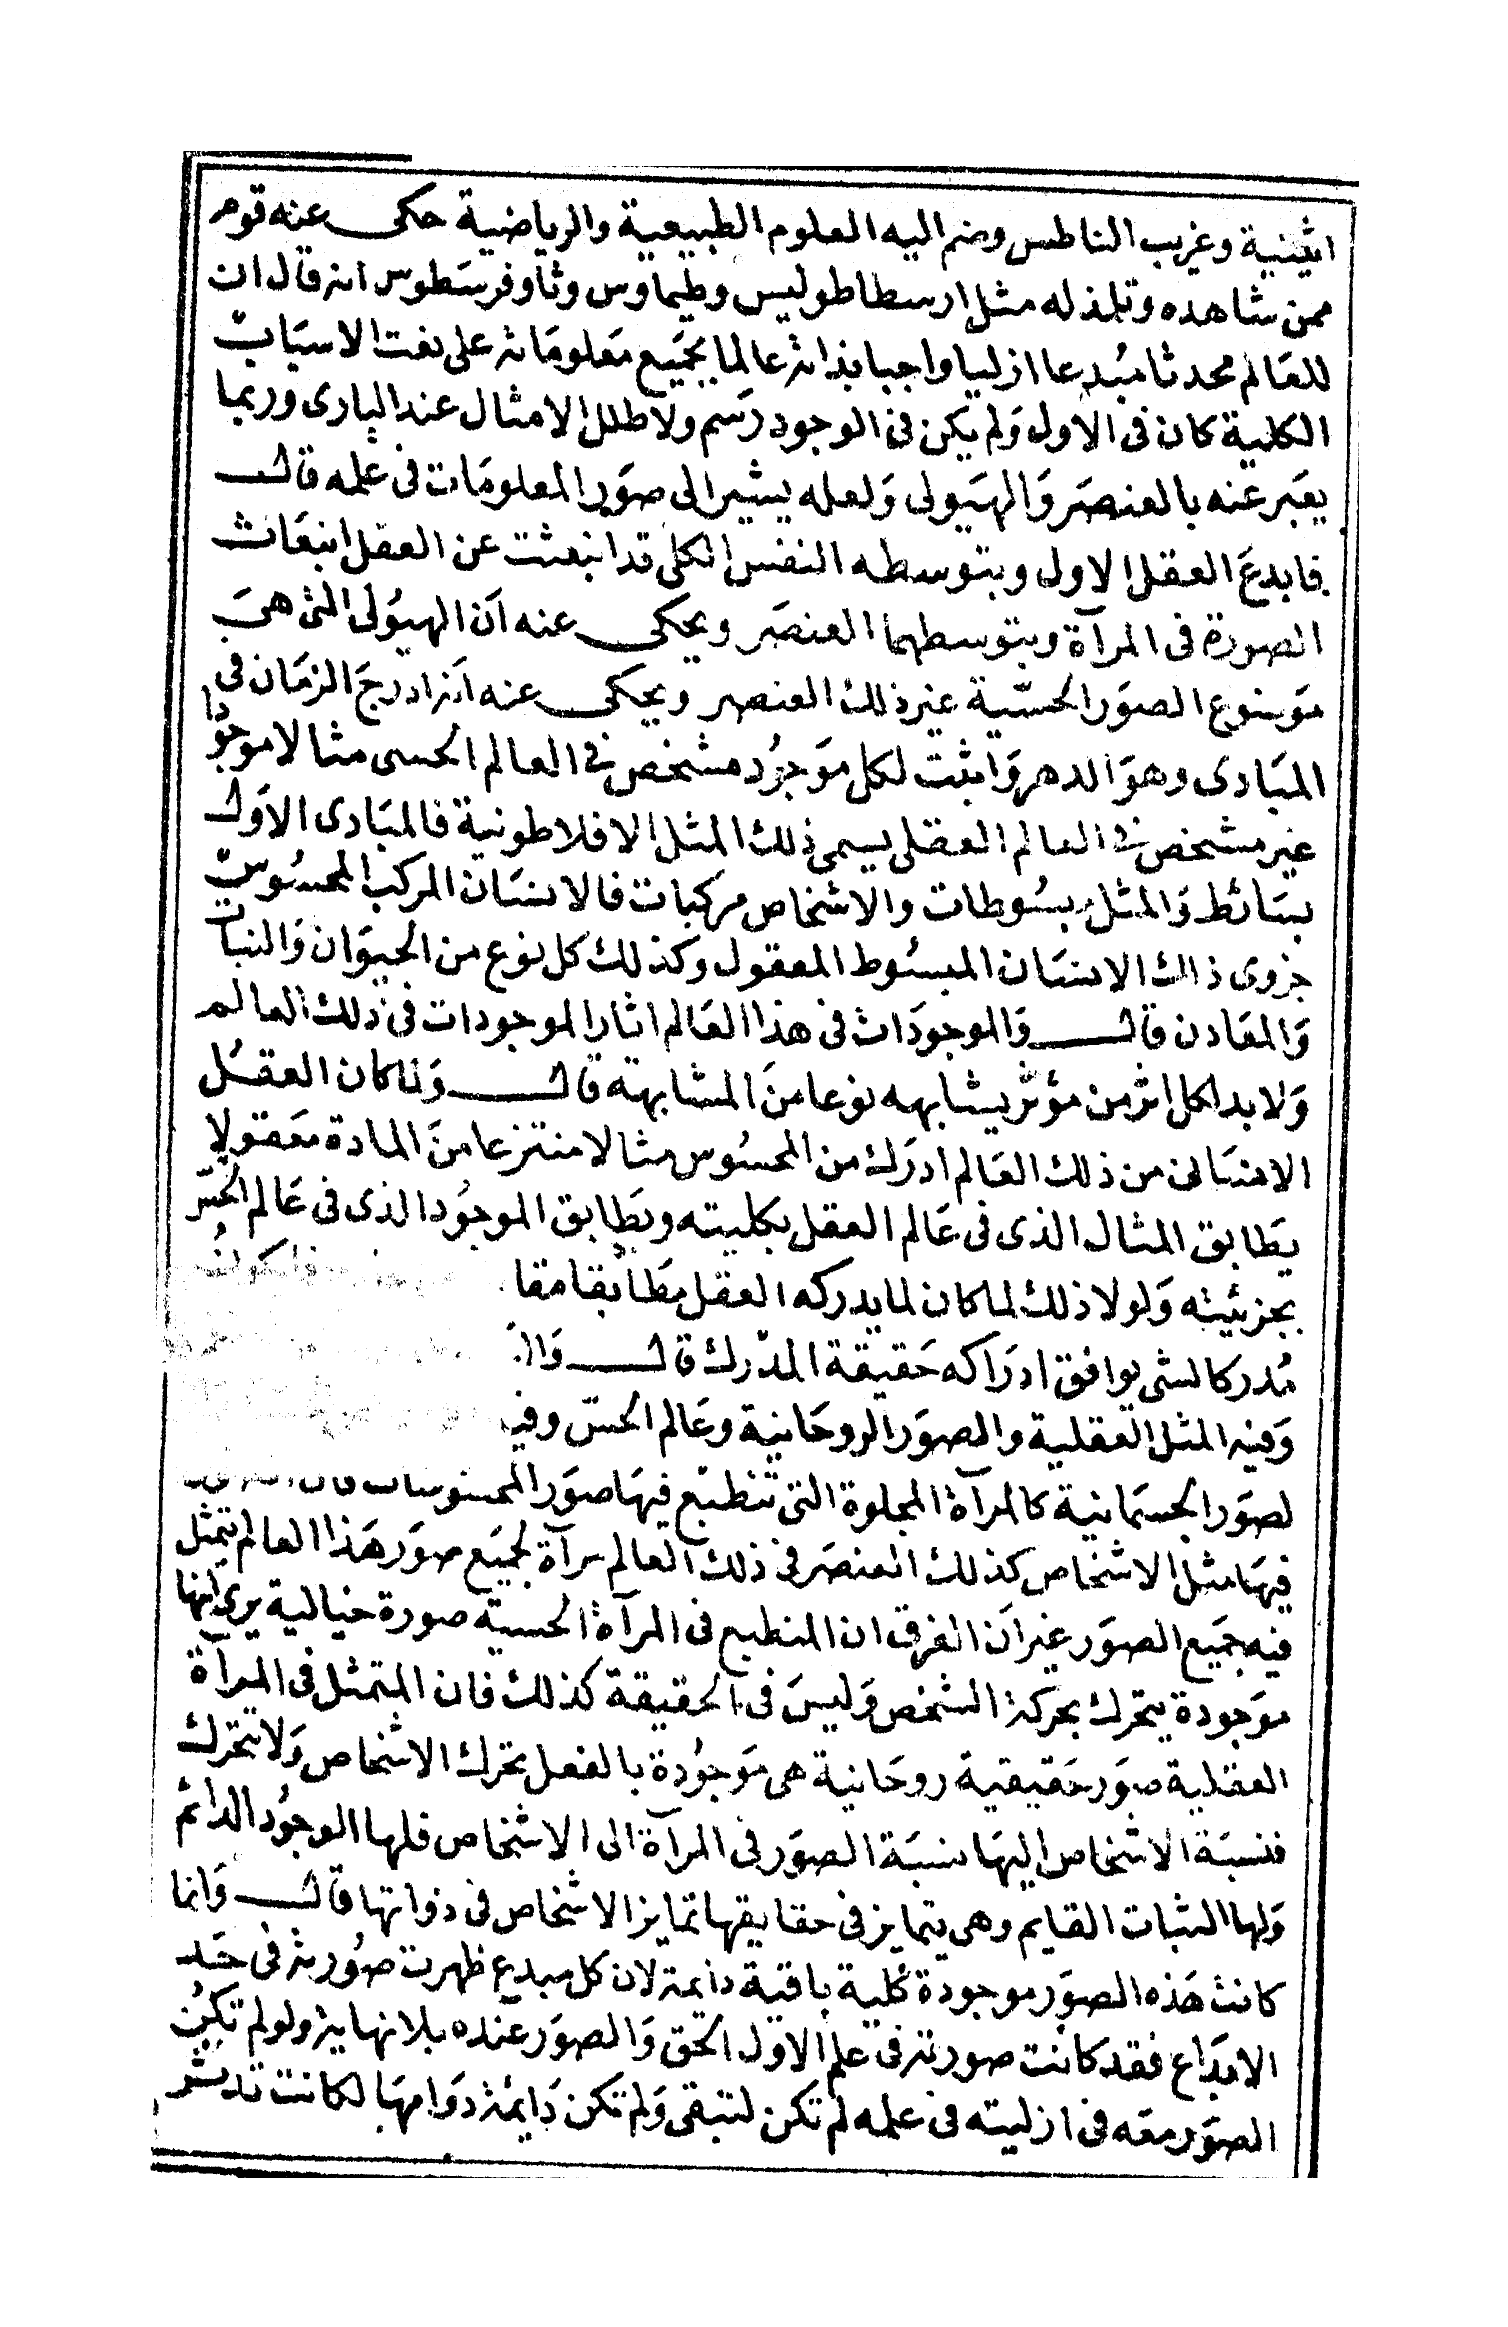 اثينية وغريب الناطس وضم اليه العلوم الطبيعية والرياضية حكى عنه قوم
ممن شاهده وتلمذ له مثل ارسطاطوليس وطيماوس وثاوفرسطوس انه قال ان
للعالم محدثا مبدعا ازليا واجبا بذاته عالما بجميع معلوماته على نعت الاسباب
الكلية كان فى الاول ولم يكن فى الوجود رسم ولا طلل الا مثال عند البارى وربما
يعبر عنه بالعنصر والهيولى ولعله يشير الى صور المعلومات فى علمه قال
فابدع العقل الاول وبتوسطه النفس الكلى قد انبعثت عن العقل انبعاث
الصورة فى المرآة وبتوسطهما العنصر ويحكى عنه ان الهيولى التى هى
موضوع الصور الحسية غير ذلك العنصر ويحكى عنه انه ادرج الزمان فى
المبادى وهو الدهر واثبت لكل موجود مشخص فى العالم الحسى مثالا موجودا
غير مشخص فى العالم العقلى يسمى ذلك المثل الافلاطونية فالمبادى الاول
بسائط والمثل مبسوطات والاشخاص مركبات فالانسان المركب المحسوس
جزوى ذلك الانسان المبسوط المعقول وكذلك كل نوع من الحيوان والنبات
والمعادن قال والموجودات فى هذا العالم اثار الموجودات فى ذلك العالم
ولا بد لكل اثر من مؤثر يشابهه نوعا من المشابهة قال ولما كان العقل
الانسانى من ذلك العالم ادرك من المحسوس مثالا منتزعا من المادة معقولا
يطابق المثال الذى فى عالم العقل بكليته ويطابق الموجود الذى فى عالم الحس
بجزئيته ولولا ذلك لما كان لما يدركه العقل مطابقا مقا
مدركا لشى يوافق ادراكه حقيقة المدرك قال
وفيه المثل العقلية والصور الروحانية وعالم الحس وفيه
لصور الجسمانية كالمرآة المجلوة التى تنطبع فيها صور المحسوسات
فيها مثل الاشخاص كذلك العنصر فى ذلك العالم مرآة لجميع صور هذا العالم يتمثل
فيه جميع الصور غير ان الفرق ان المنطبع فى المرآة الحسية صورة خيالية يرى انها
موجودة يتحرك بحركة الشخص وليس فى الحقيقة كذلك فان المتمثل فى المرآة
العقلية صور حقيقية روحانية هى موجودة بالفعل تحرك الاشخاص ولا تتحرك
فنسبة الاشخاص اليها نسبة الصور فى المرآة الى الاشخاص فلها الوجود الدائم
ولها الثبات القايم وهى يتمايز فى حقايقها تمايز الاشخاص فى ذواتها قال وانما
كانت هذه الصور موجودة كلية باقية دايمة لان كل مبدع ظهرت صورته فى حد
الابداع فقد كانت صورته فى علم الاول الحق والصور عنده بلا نهاية ولو لم تكن
الصور معه فى ازليته فى علمه لم تكن لتبقى ولم تكن دايمة دوامها لكانت تدثر